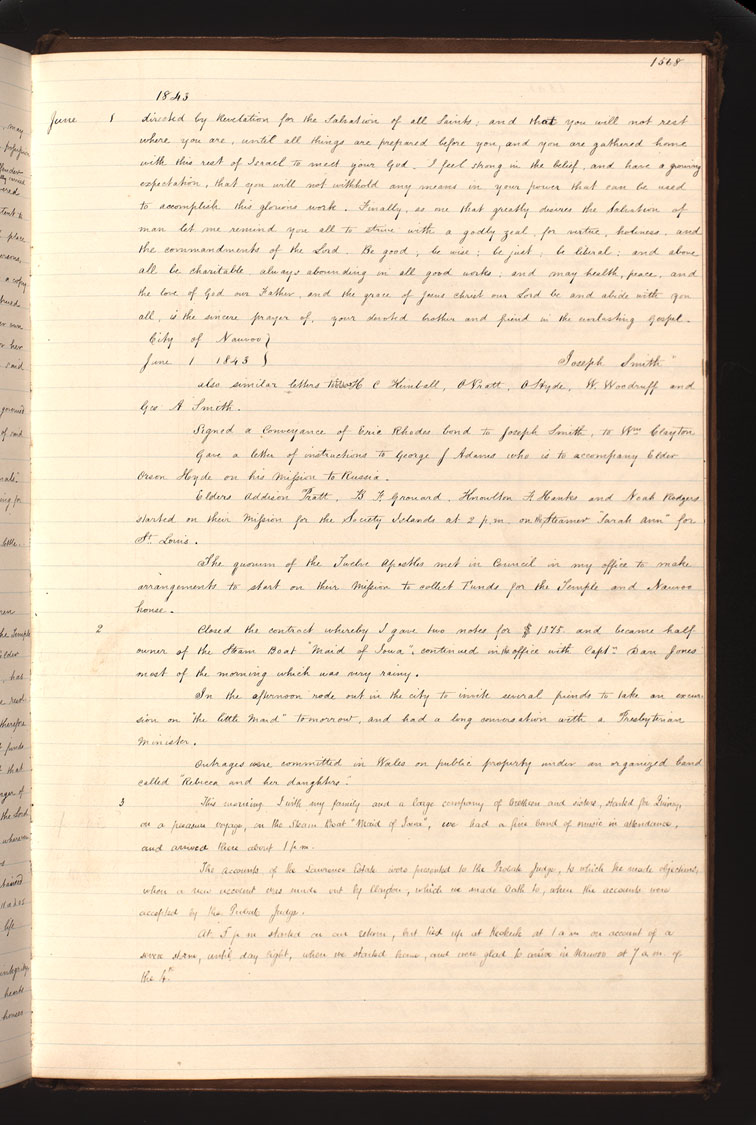 1568
1843
June 1 directed by Revelation for the Salvation of all Saints; and that you will not rest
where you are, until all things are prepared before you, and you are gathered home
with this rest of Israel to meet your God. I feel strong in the belief, and have a growing
expectation, that you will not withhold any means in your power that can be used
to accomplish this glorious work. Finally, as one that greatly desires the Salvation of
man let me remind you all to strive with a godly zeal, for virtue, holiness, and
the commandments of the Lord. Be good; be wise; be just; be liberal; and above
all be charitable, always abounding in all good works; and may health, peace, and
the love of God our Father, and the grace of Jesus christ our Lord be and abide with you
all, is the sincere prayer of, your devoted brother and friend in the everlasting Gospel.
City of Nauvoo }
June 1 1843 } Joseph Smith"
also similar letters to H C Kimball, O Pratt, O Hyde, W. Woodruff and
Geo A Smith.
Signed a Conveyance of Eric Rhodes bond to Joseph Smith, to Wm Clayton
Gave a letter of instructions to George J Adams who is to accompany Elder
Orson Hyde on his Mission to Russia.
Elders Addison Pratt, B. F. Grouard, Knowlton F. Hanks and Noah Rodgers
started on their Mission for the Society Islands at 2 p.m. on the Steamer "Sarah Ann" for
St. Louis.
The quorum of the Twelve Apostles met in Council in my office to make
arrangements to start on their Mission to collect Funds for the Temple and Nauvoo
house.
2 Closed the contract whereby I gave two notes for $1375 and became half
owner of the Steam Boat "Maid of Iowa", continued in the office with Captn. Dan Jones
most of the morning which was very rainy.
In the afternoon rode out in the city to invite several friends to take an excur-
sion on "the little Maid" tomorrow, and had a long conversation with a Presbyterian
Minister.
Outrages were committed in Wales on public property under an organized band
called "Rebecca and her daughters".
3 This morning I with my family and a large company of brethren and sisters, started for Quincy,
on a pleasure voyage, on the Steam Boat "Maid of Iowa", we had a fine band of music in attendance,
and arrived there about 1 p.m.
The accounts of the Lawrence Estate were presented to the Probate Judge, to which he made objections,
when a new account was made out by Clayton, which we made oath to, when the accounts were
accepted by the Probate Judge.
At 5 p m started on our return, but tied up at Keokuk at 1 a m on account of a
severe storm, until day light, when we started home, and were glad to arrive in Nauvoo at 7 a m. of
the 4th.